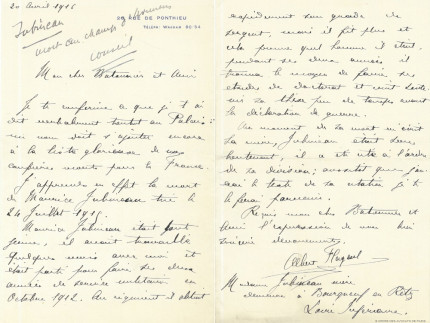 20 Avril 1916
39 RUE DE PONTHIEU
TÉLÉPH: WAGRAM
Jubineau
mort au champ d'honneur
conseil
Mon cher Batonnier et Ami
Je te confirme ce que j't'ai
dit verbalement tantôt au Palais:
un nom doit s'ajouter encore
à la liste glorieuse de nos
confrères morts pour la France.
J'apprends en effet la mort
de Maurice Jubineau tué le
24 Juillet 1915.
Maurice Jubineau était tout
jeune, il avait travaillé
quelques mois avec moi et
était parti pour faire ses deux
années de service militaire en
Octobre 1912. Au régiment il obtint
rapidement son grade de
sergent, mais il fit plus et
cela prouve quel homme il était,
pendant ses deux années il
trouva le moyen de faire ses
études de doctorat et vint
sa thèse peu de temps avant
la déclaration de guerre.
Au moment de sa mort
Jubineau était sous-
lieutenant, il a été cité à l'ordre
de sa division; aussitôt que j'au-
rai le texte de sa citation je te
le ferai parvenir.
Reçois mon cher Batonnier et
Ami l'expression de mes
sincères dévouements.
Albert
Madame Jubineau mère
demeure à Bourgneuf en Retz
Loire Inférieure.